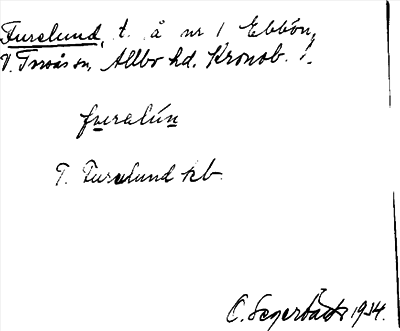 Furulund, t. å nr 1 Ebbön,
V. Torsås sn, Allbo hd. Kronob. l.
furalún
T. Furulund kb.
C. Segerbäck 1934.